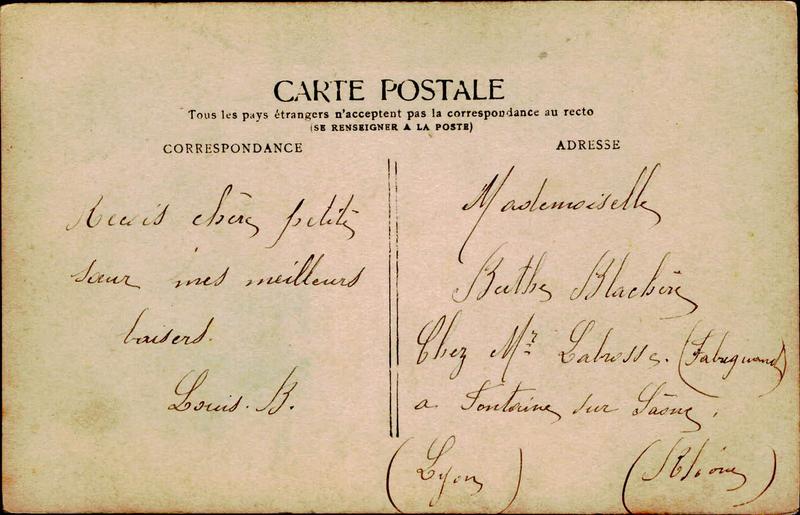 CARTE POSTALE
Tous les pays étrangers n'acceptent pas la correspondance au recto
(SE RENSEIGNER A LA POSTE)
CORRESPONDANCE
Recois chère petite
sœur mes meilleurs
baisers.
Louis. B.
ADRESSE
Mademoiselle
Berthe Blachère
Chez Mr Labrosse.
a Fontaine sur Saône,
(Lyon) (Rhône)